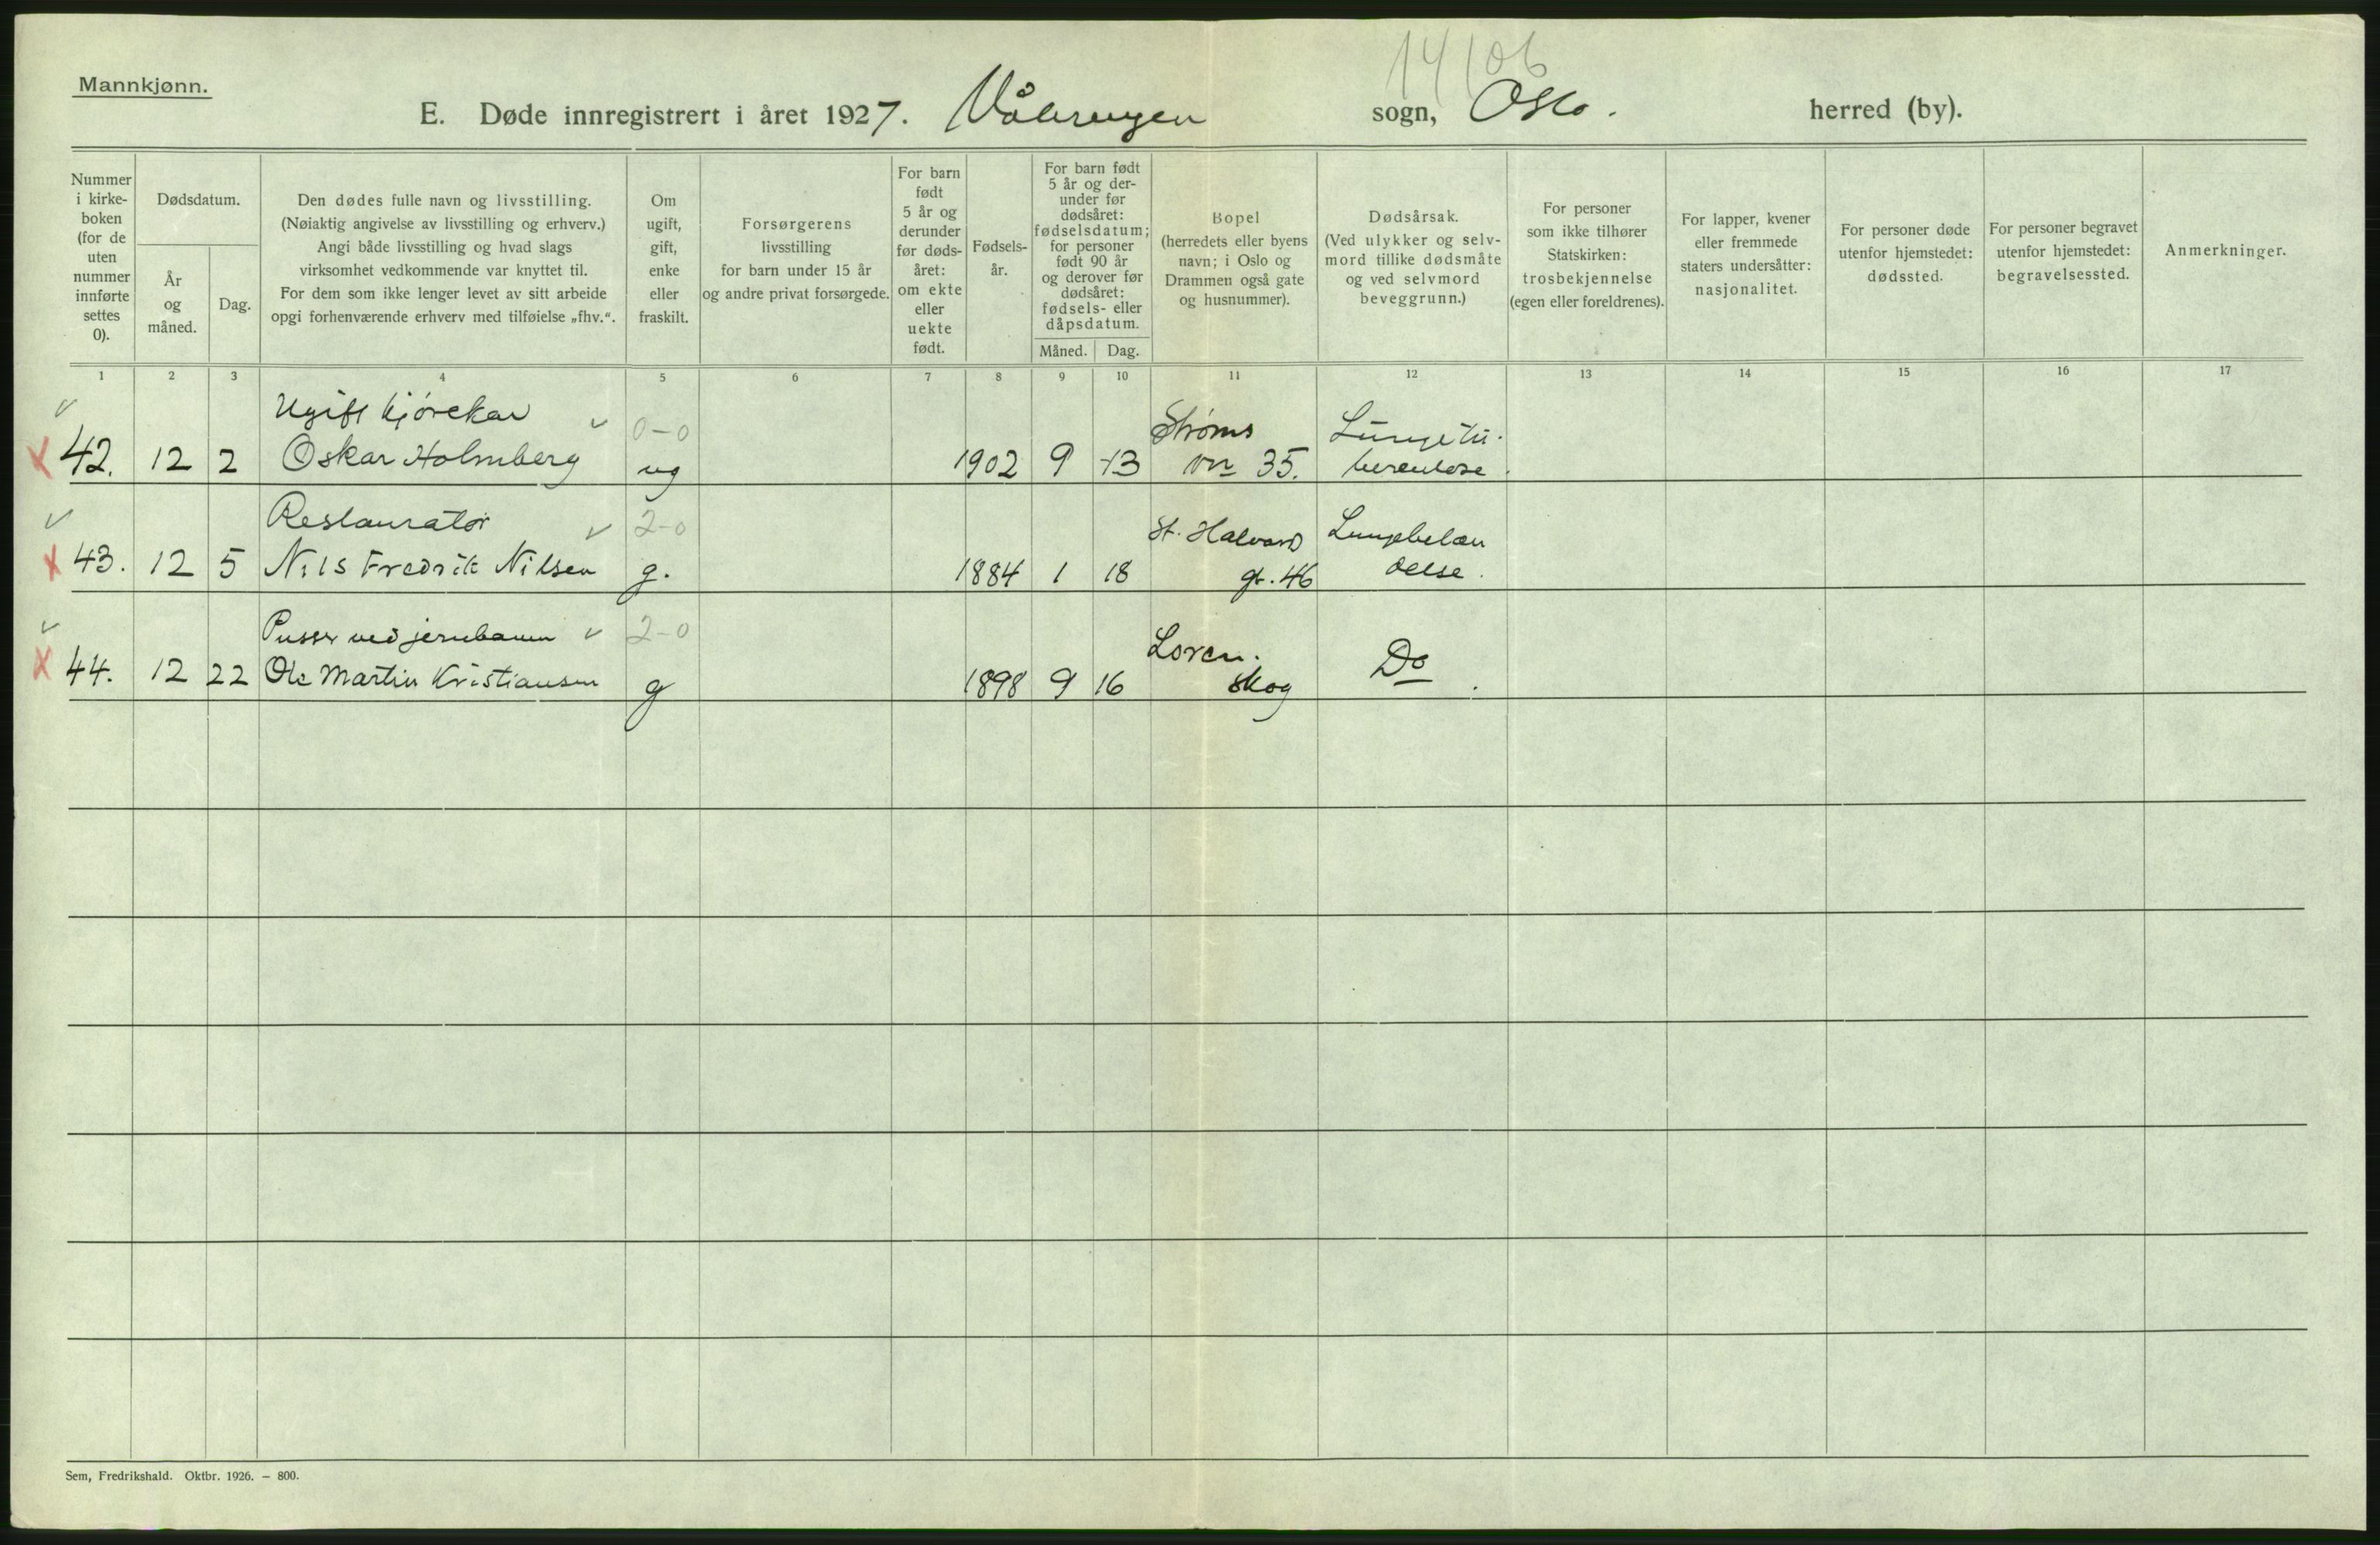 14/06
Mannkjønn.
E. Døde innregistrert i året 1927. Vålerengen sogn, Oslo. herred (by).
Nummer i kirke- boken (for de uten nummer innførte settes 0).
Dødsdatum.
År og måned.
Dag.
Den dødes fulle navn og livsstilling.
(Nøiaktig angivelse av livsstilling og erhverv.)
Angi både livsstilling og hvad slags
virksomhet vedkommende var knyttet til.
For dem som ikke lenger levet av sitt arbeide
opgi forhenværende erhverv med tilføielse „fhv.“.
Om ugift, gift, enke eller fraskilt.
Forsørgerens
livsstilling
for barn under 15 år
og andre privat forsørgede.
For barn født 5 år og derunder før døds- året: om ekte eller uekte født.
Fødsels- år.
For barn født 5 år og der- under før dødsåret: fødselsdatum; for personer født 90 år og derover før dødsåret: fødsels- eller dåpsdatum.
Måned. Dag.
Bopel
(herredets eller byens
navn; i Oslo og
Drammen også gate
og husnummer).
Dødsårsak.
(Ved ulykker og selv-
mord tillike dødsmåte
og ved selvmord
beveggrunn.)
For personer
som ikke tilhører
Statskirken:
trosbekjennelse
(egen eller foreldrenes).
For lapper, kvener
eller fremmede
staters undersåtter:
nasjonalitet.
For personer døde
utenfor hjemstedet:
dødssted.
For personer begravet
utenfor hjemstedet:
begravelsessted.
Anmerkninger.
1 2 3 4 5 6 7 8 9 10 11 12 13 14 15 16 17
Ugift kjørekar 0-0 Strøms Lungetu-
42. 12 2 Oskar Holmberg ug 1902 9 13 vn 35. berculose.
Restauratør 2-0 St. Halvard Lungebetæn
43. 12 5 Nils Fredrik Nilsen g. 1884 1 18 gt. 46 delse.
Pusser ved jernbanen 2-0 Loren-
44. 12 22 Ole Martin Kristiansen g 1898 9 16 skog Do.
Sem, Fredrikshald. Oktbr. 1926. – 800.